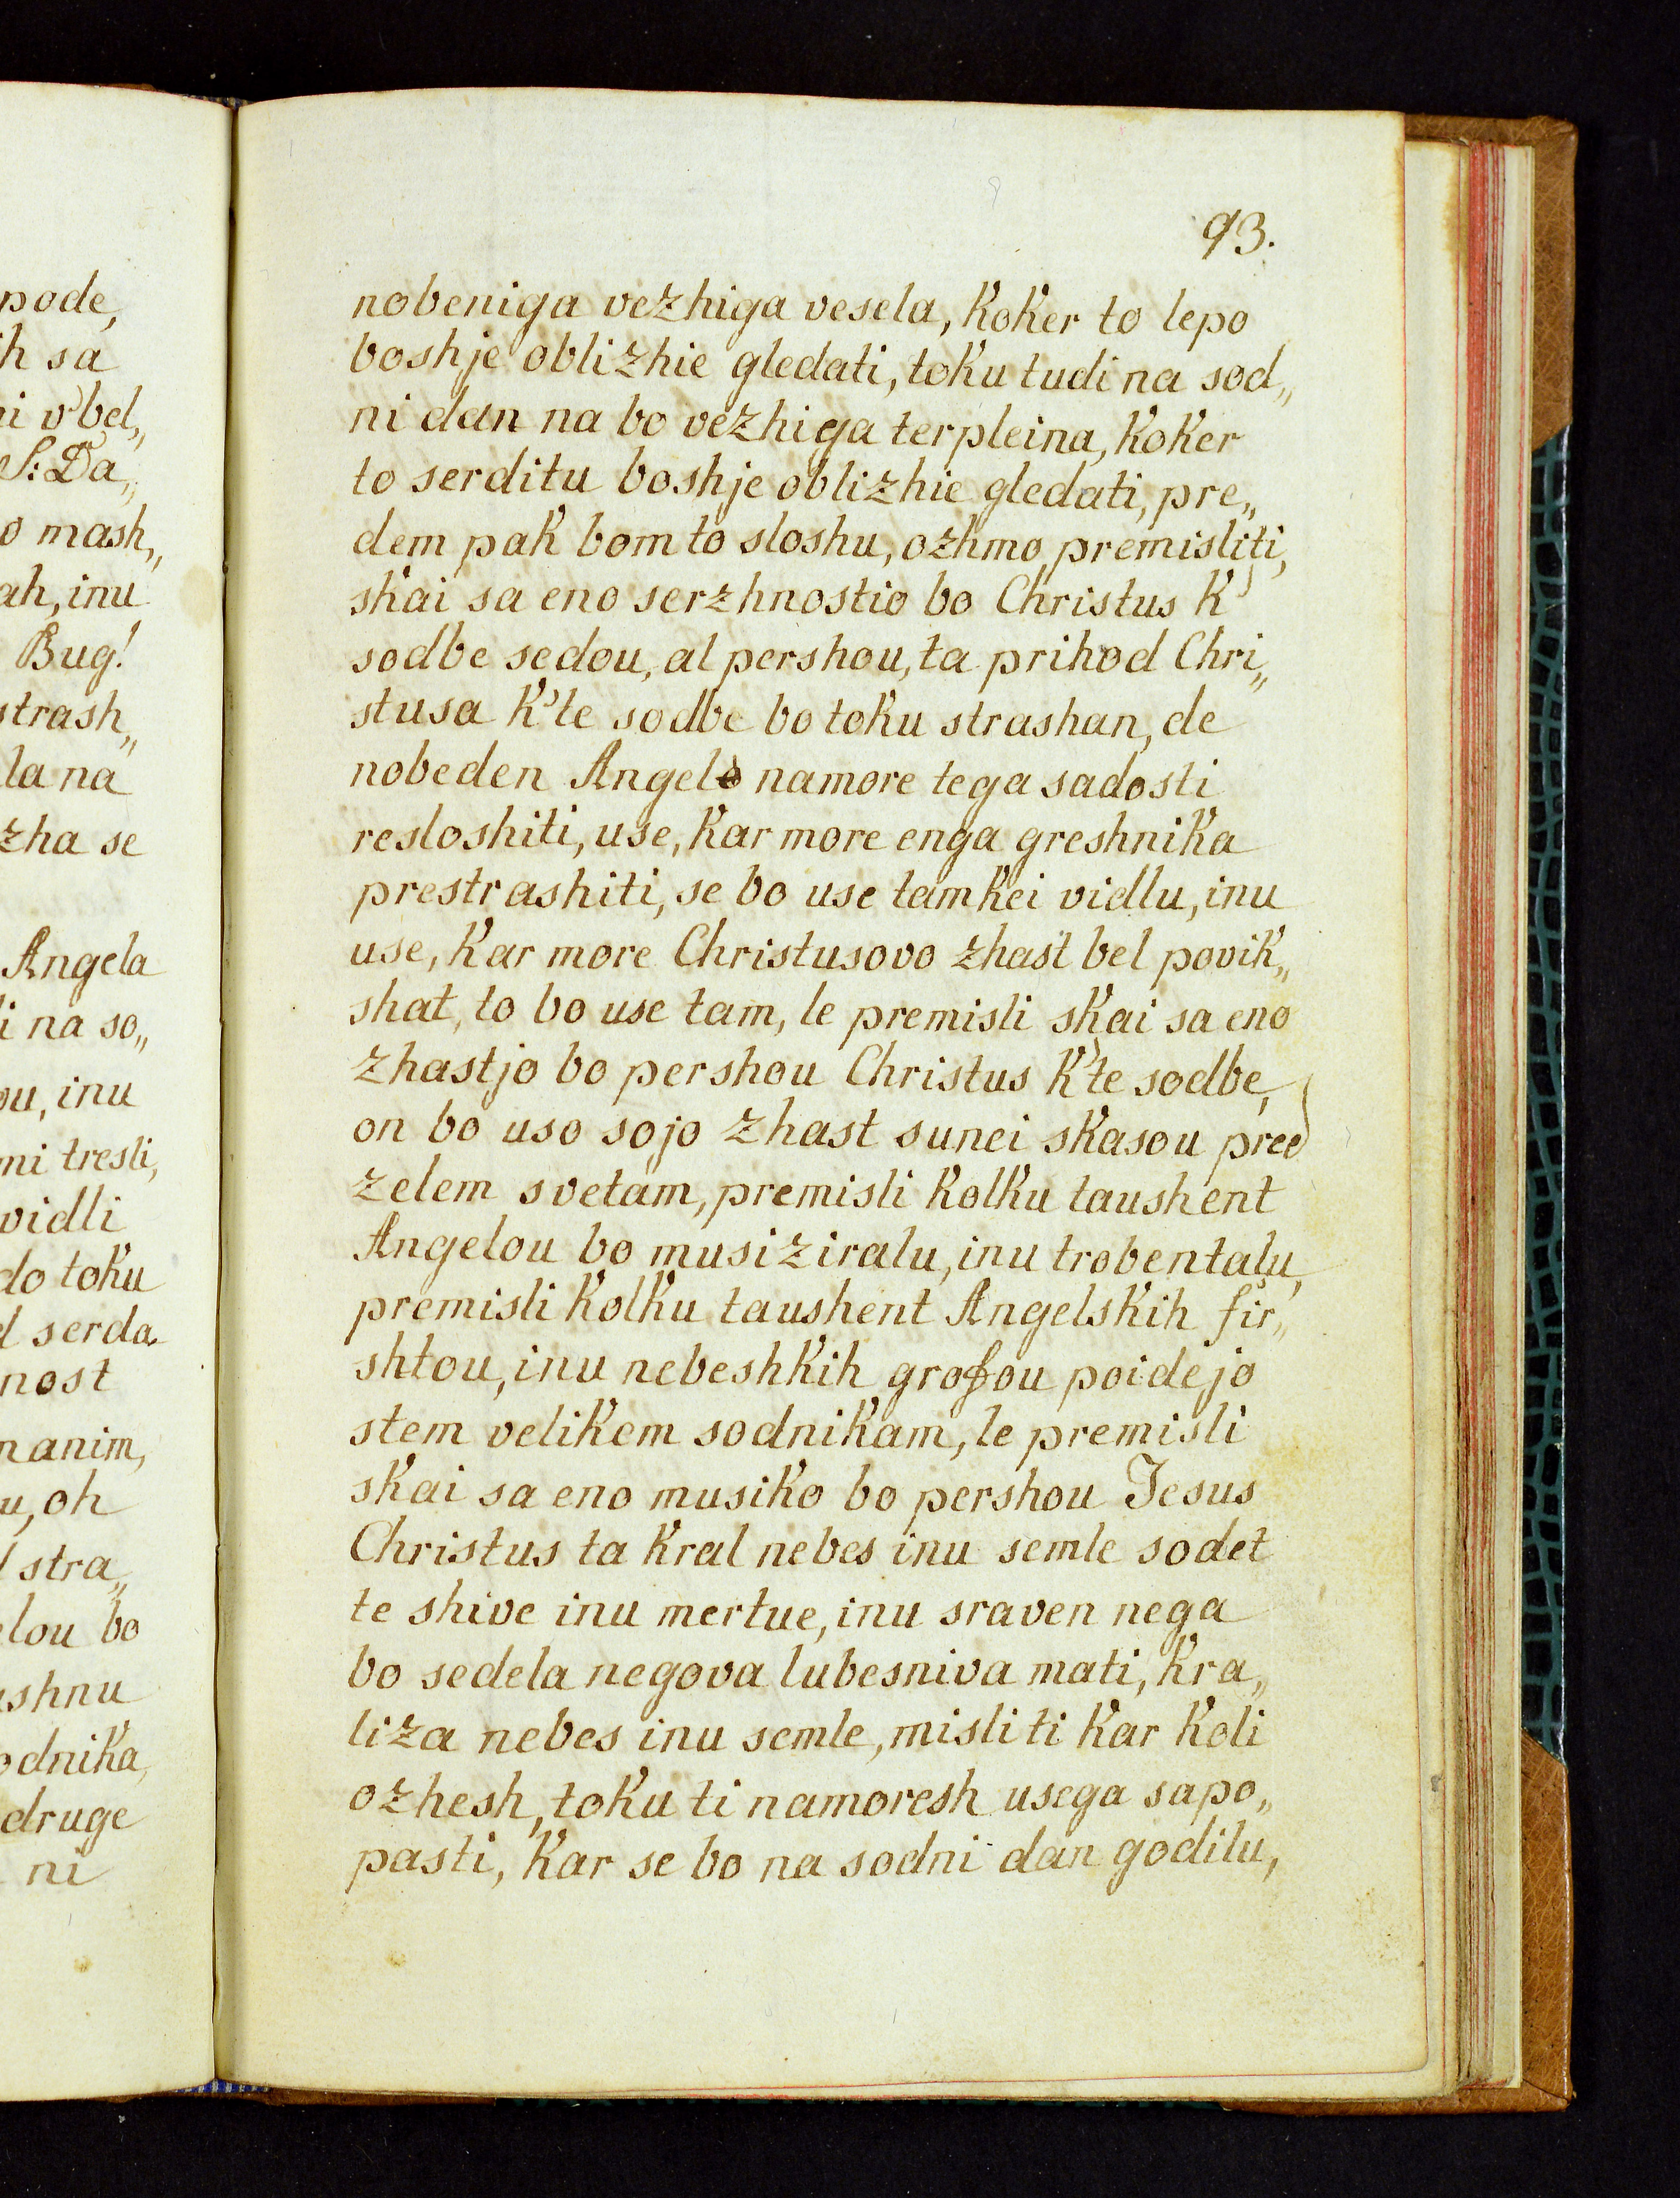 pode,
h sa
ni v'bel„
S: Da„
o mash„
ah, inu
Bug!
strash„
la na
zha se
Angela
i na so„
ou, inu
mi tresli,
vidli
do toku
d serda
nost
nanim,
u, oh
stra„
elou bo
ashnu
odnika,
druge
ni
93.
nobeniga vezhiga vesela, koker to lepo
boshje oblizhie gledati, toku tudi na sod„
ni dan na bo vezhiga terpleina, koker
to serditu boshje oblizhie gledati, pre„
dem pak bom to sloshu, ozhmo premisliti,
skai sa eno serzhnostio bo Christus k'
sodbe sedou, al pershou, ta prihod Chri„
stusa k'te sodbe bo toku strashan, de
nobeden Angel namore tega sadosti
resloshiti, use, kar more enga greshnika
prestrashiti, se bo use tamkei vidlu, inu
use, kar more Christusovo zhast bel povik„
shat, to bo use tam, le premisli skai sa eno
zhastjo bo pershou Christus k'te sodbe,
on bo uso sojo zhast sunei skasou pred
zelem svetam, premisli kolku taushent
Angelou bo musiziralu, inu trobentalu,
premisli kolku taushent Angelskih fir„
shtou, inu nebeshkih grofou poidejo
stem velikem sodnikam, le premisli
skai sa eno musiko bo pershou Jesus
Christus ta kral nebes inu semle sodet
te shive inu mertue, inu sraven nega
bo sedela negova lubesniva mati, kra„
liza nebes inu semle, misli ti kar koli
ozhesh, toku ti namoresh usega sapo„
pasti, kar se bo na sodni dan godilu,